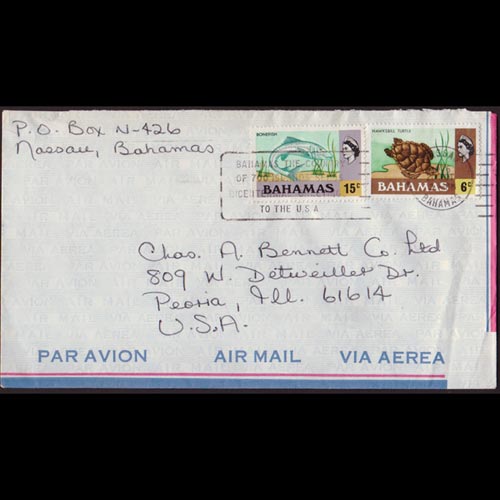 P.O. Box N-426
Nassau, Bahamas
BONEFISH
BAHAMAS 15c
HAWKSBILL TURTLE
BAHAMAS 6c
BAHAMAS
OF 700
TO THE U.S.A
BAHAMAS
Chas. A. Bennett Co. Ltd
809 W. Detweiller Dr.
Peoria, Ill. 61614
U.S.A.
PAR AVION AIR MAIL VIA AEREA